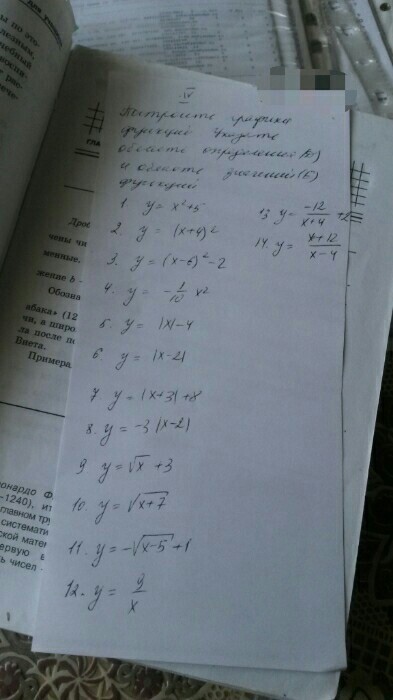 IV
Постройте графики
функций Укажите
область определения(D)
и область значений(E)
функций
1. y = x²+5
2. y = (x+4)²
3. y = (x-6)²-2
4. y = -1/10 x²
5. y = |x|-4
6 y = |x-2|
7. y = |x+3|+8
8. y = -3|x-2|
9 y = √x + 3
10. y = √x+7
11. y = -√x-5 +1
12. y = 9/x
13 y = -12/x+4 +2
14. y = x+12/x-4
ГЛА
чены чи
менные.
жение b -
Обозна
абака» (12
чи, а широ
ла после по
Виета.
Примера
онардо Ф
-1240), ит
главном тру
систематі
ской матем
ервую в
ть чисел -